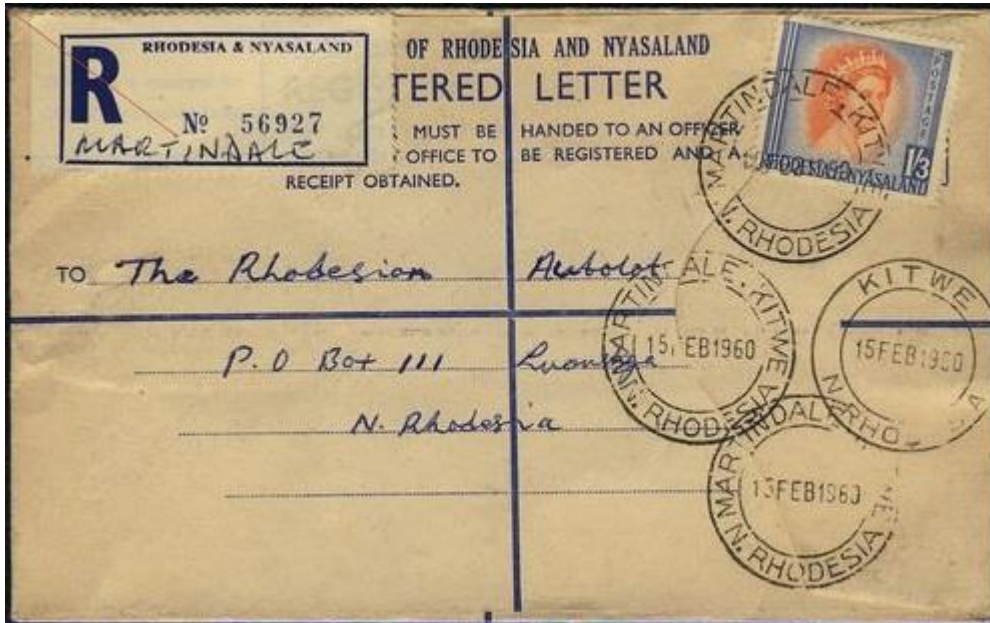 RHODESIA & NYASALAND
R
No 56927
MARTINDALE
OF RHODESIA AND NYASALAND
TERED LETTER
MUST BE HANDED TO AN OFFICER
OFFICE TO BE REGISTERED AND A
RECEIPT OBTAINED.
POSTAGE
1/3
RHODESIA & NYASALAND
MARTINDALE. KITWE
N. RHODESIA
TO The Rhodesian
P.O Box 111
N. Rhodesia
MARTINDALE. KITWE
15 FEB 1960
N. RHODESIA
KITWE
15 FEB 1960
N. RHO
MARTINDALE
15 FEB 1960
N. RHODESIA